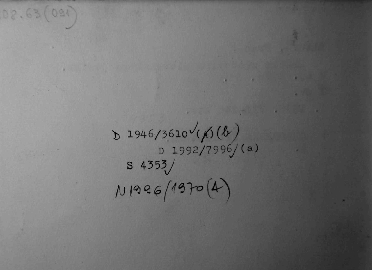 D 1946/3610 ✓ (a) (b)
D 1992/7996 ✓ (a)
S 4353 ✓
N1996/1970(4)